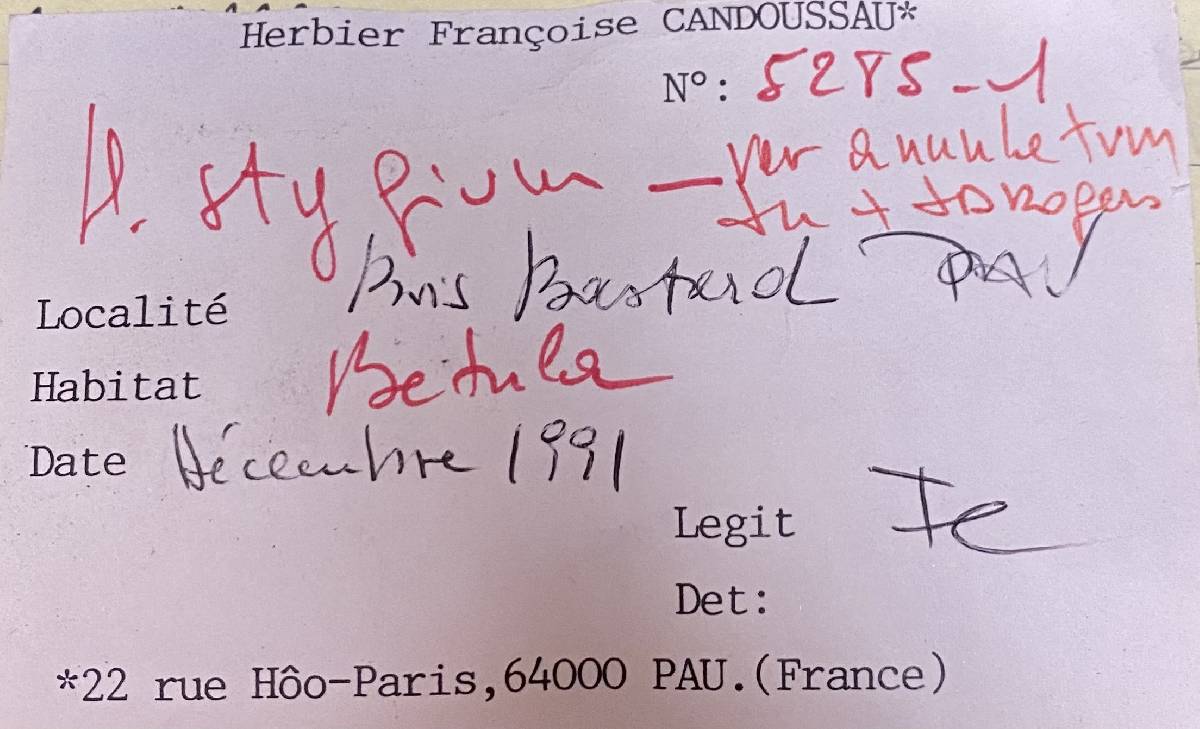 Herbier Françoise CANDOUSSAU*
N°: 5285-1
H. stygium — var annulatum
Localité Bois Bastard PAU
Habitat Betula
Date Décembre 1991
Legit Fc
Det:
*22 rue Hôo-Paris,64000 PAU.(France)